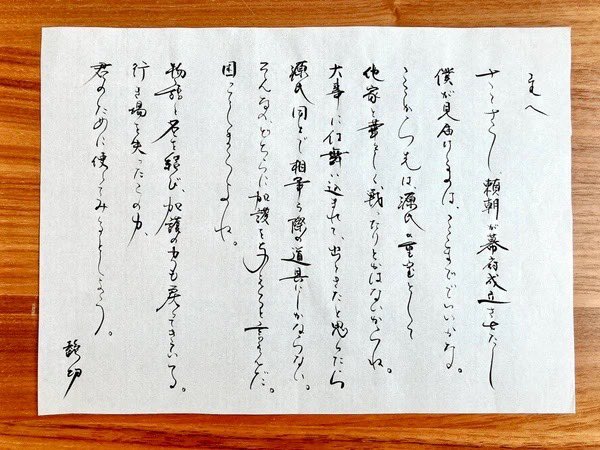 主へ
頼朝が幕府成立させたし
僕が見届けるのは、ここまででいいかな。
ここから先は、源氏の重宝として
他家と華々しく戦ったりとかはないからね。
大事に仕舞い込まれて、出てきたと思ったら
源氏同士で相争う際の道具にしかならない。
そんなのどちらに加護を与えろと言うんだ。
困ってしまうよね。
物語と名を結び、加護の力も戻ってきている。
行き場を失ったこの力、
君のために使ってみるとしよう。
髭切